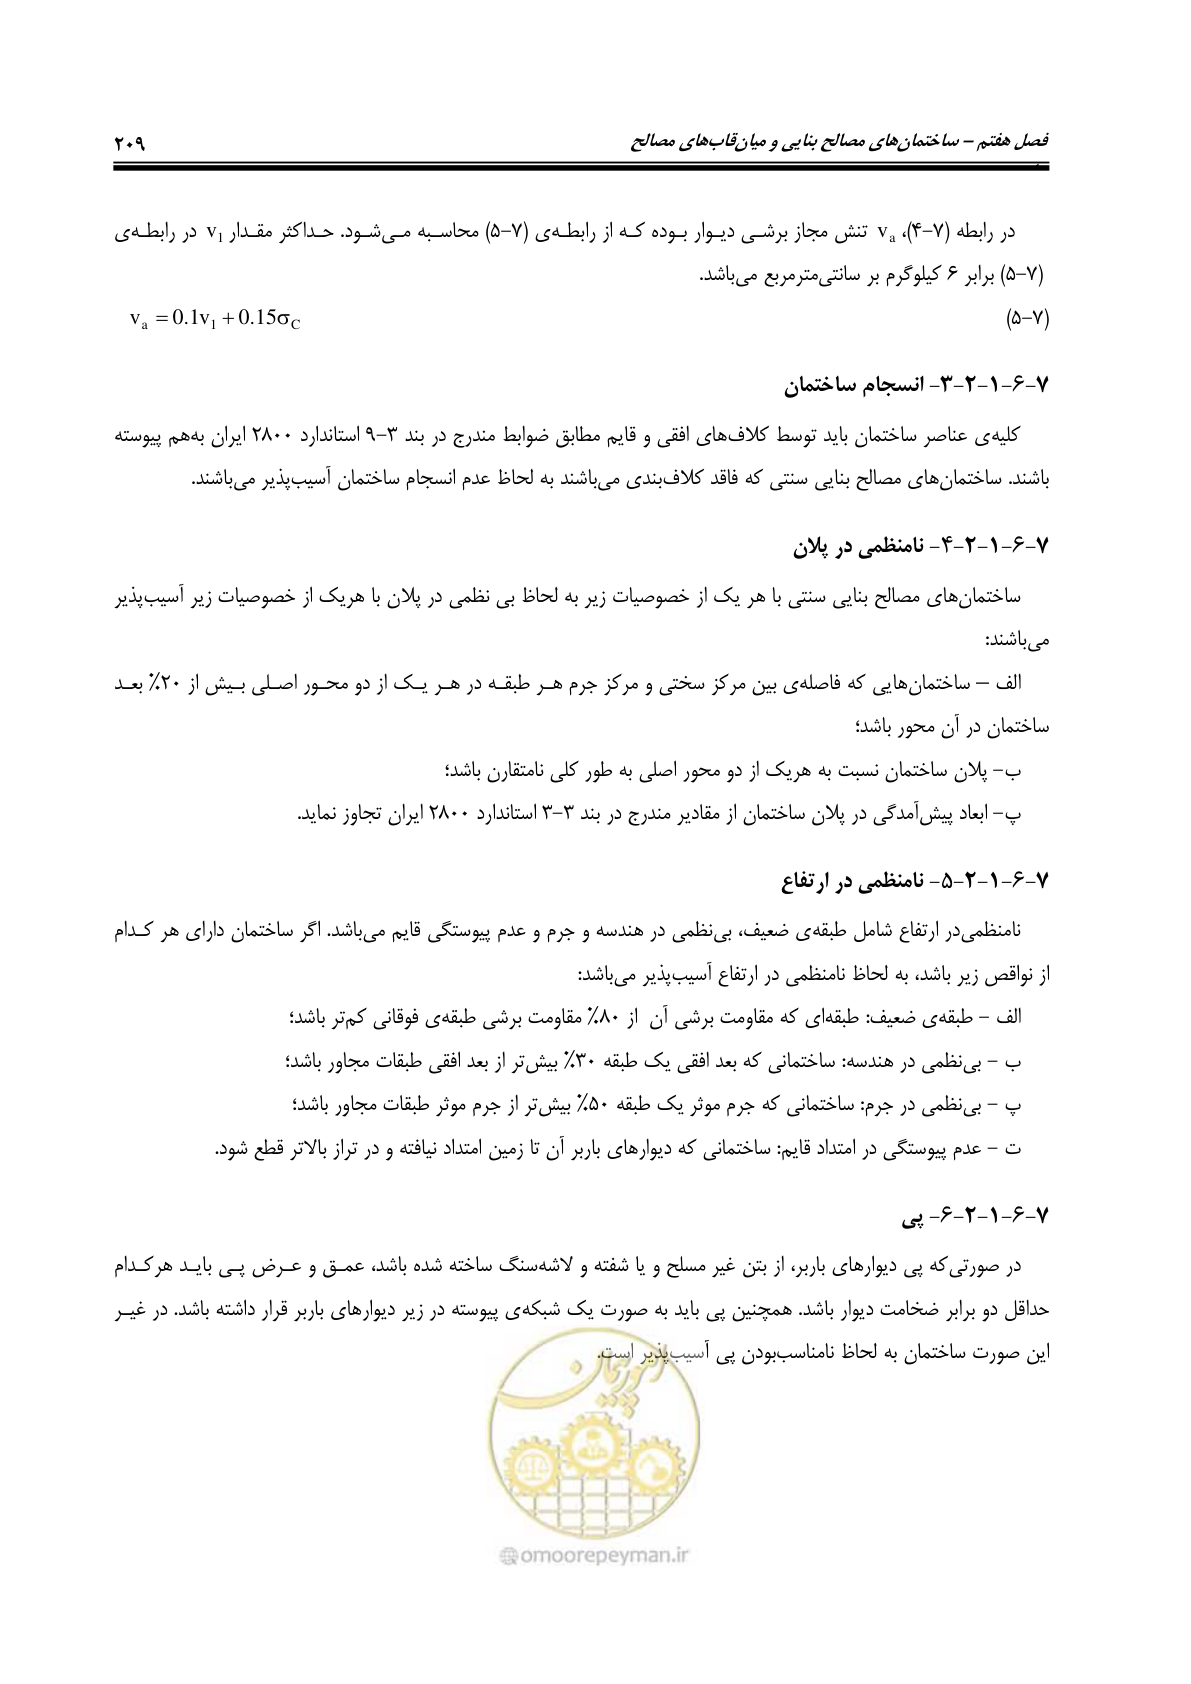 فصل هفتم – ساختمان‌های مصالح بنایی و میان‌قاب‌های مصالح ۲۰۹
در رابطه (۷-۴)، vₐ تنش مجاز برشی دیوار بوده که از رابطه‌ی (۷-۵) محاسبه می‌شود. حداکثر مقدار v₁ در رابطه‌ی
(۷-۵) برابر ۶ کیلوگرم بر سانتی‌مترمربع می‌باشد.
(۷-۵) vₐ = 0.1v₁ + 0.15σ_C
۷-۶-۱-۲-۳- انسجام ساختمان
کلیه‌ی عناصر ساختمان باید توسط کلاف‌های افقی و قایم مطابق ضوابط مندرج در بند ۳-۹ استاندارد ۲۸۰۰ ایران به‌هم پیوسته
باشند. ساختمان‌های مصالح بنایی سنتی که فاقد کلاف‌بندی می‌باشند به لحاظ عدم انسجام ساختمان آسیب‌پذیر می‌باشند.
۷-۶-۱-۲-۴- نامنظمی در پلان
ساختمان‌های مصالح بنایی سنتی با هر یک از خصوصیات زیر به لحاظ بی نظمی در پلان با هریک از خصوصیات زیر آسیب‌پذیر
می‌باشند:
الف – ساختمان‌هایی که فاصله‌ی بین مرکز سختی و مرکز جرم هر طبقه در هر یک از دو محور اصلی بیش از ۲۰٪ بعد
ساختمان در آن محور باشد؛
ب- پلان ساختمان نسبت به هریک از دو محور اصلی به طور کلی نامتقارن باشد؛
پ- ابعاد پیش‌آمدگی در پلان ساختمان از مقادیر مندرج در بند ۳-۳ استاندارد ۲۸۰۰ ایران تجاوز نماید.
۷-۶-۱-۲-۵- نامنظمی در ارتفاع
نامنظمی‌در ارتفاع شامل طبقه‌ی ضعیف، بی‌نظمی در هندسه و جرم و عدم پیوستگی قایم می‌باشد. اگر ساختمان دارای هر کدام
از نواقص زیر باشد، به لحاظ نامنظمی در ارتفاع آسیب‌پذیر می‌باشد:
الف - طبقه‌ی ضعیف: طبقه‌ای که مقاومت برشی آن از ۸۰٪ مقاومت برشی طبقه‌ی فوقانی کم‌تر باشد؛
ب - بی‌نظمی در هندسه: ساختمانی که بعد افقی یک طبقه ۳۰٪ بیش‌تر از بعد افقی طبقات مجاور باشد؛
پ - بی‌نظمی در جرم: ساختمانی که جرم موثر یک طبقه ۵۰٪ بیش‌تر از جرم موثر طبقات مجاور باشد؛
ت - عدم پیوستگی در امتداد قایم: ساختمانی که دیوارهای باربر آن تا زمین امتداد نیافته و در تراز بالاتر قطع شود.
۷-۶-۱-۲-۶- پی
در صورتی‌که پی دیوارهای باربر، از بتن غیر مسلح و یا شفته و لاشه‌سنگ ساخته شده باشد، عمق و عرض پی باید هرکدام
حداقل دو برابر ضخامت دیوار باشد. همچنین پی باید به صورت یک شبکه‌ی پیوسته در زیر دیوارهای باربر قرار داشته باشد. در غیر
این صورت ساختمان به لحاظ نامناسب‌بودن پی آسیب‌پذیر است.
امور پیمان
omoorepeyman.ir